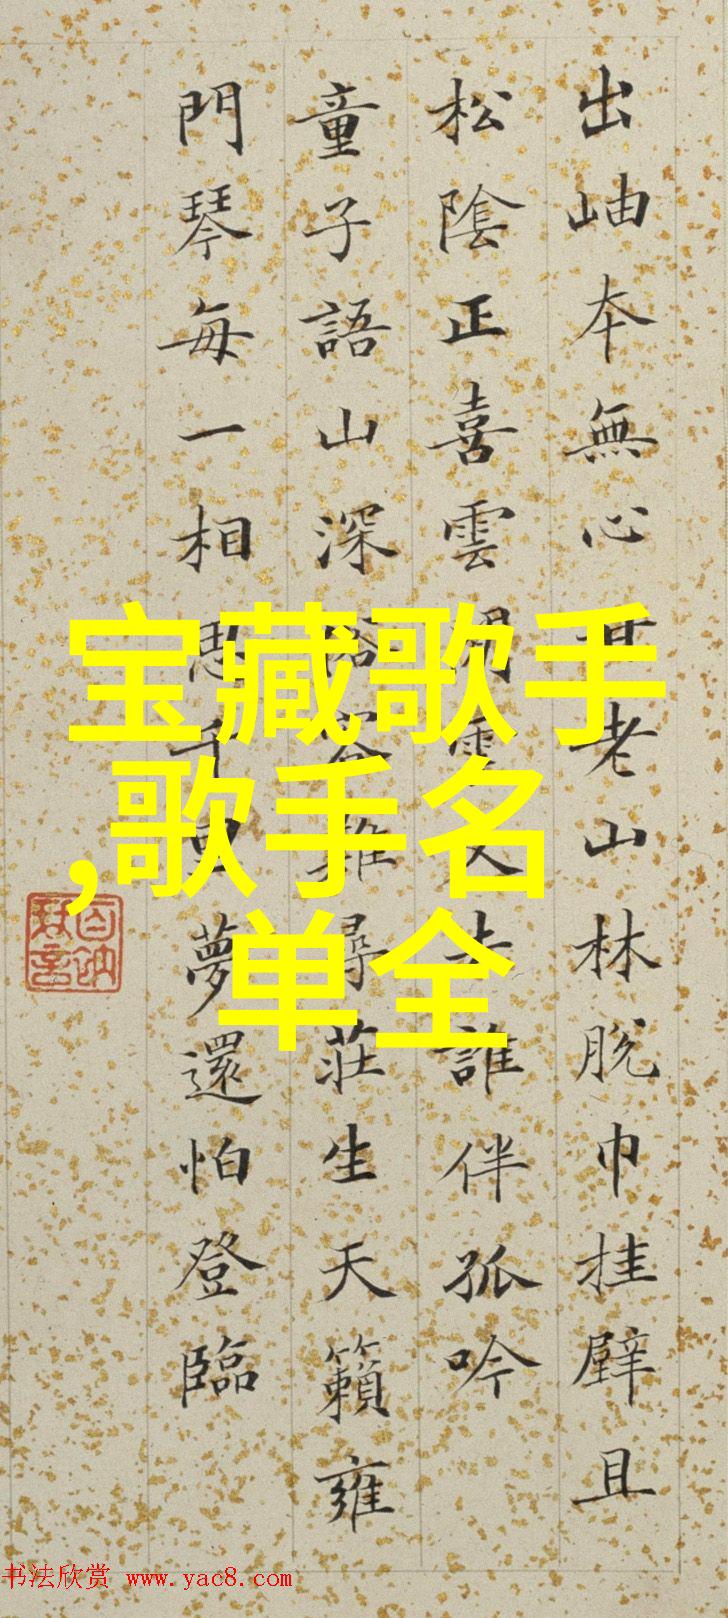 出岫本無心甘老山林脫巾挂壁且
松陰正喜雲閒雲又去誰伴孤吟
童子語山深俗客難尋莊生天籟雍
門琴每一相思千里夢還怕登臨
宝藏歌手
,歌手名
单全
书法欣赏 www.yac8.com